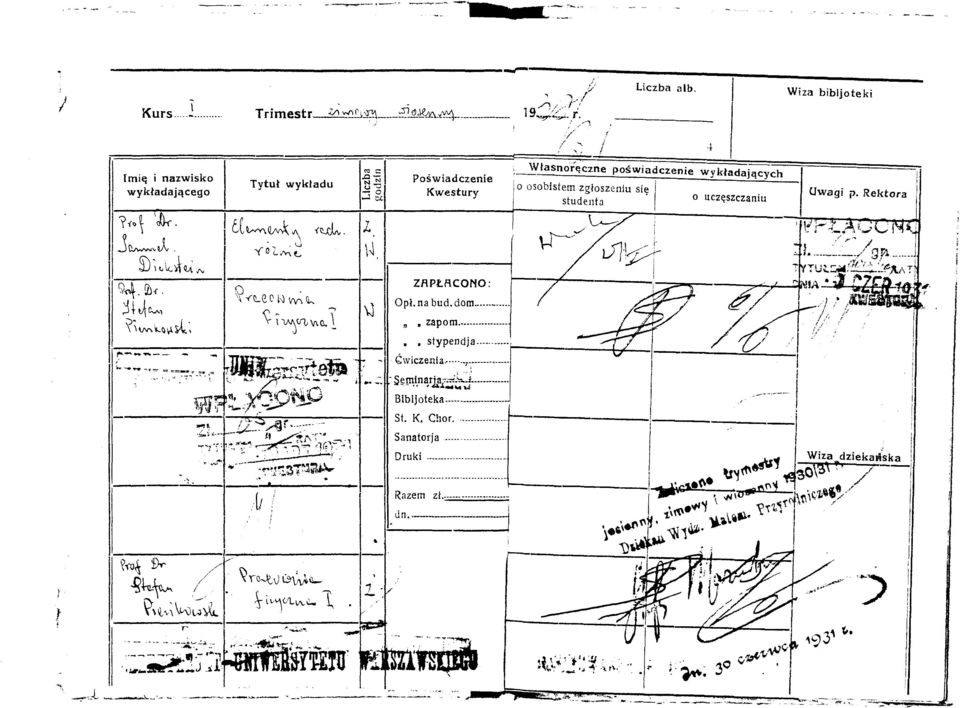 Kurs I
Trimestr zimowy wiosenny
19
r.
Liczba alb.
Wiza bibljoteki
4
Imię i nazwisko
wykładającego
Tytuł wykładu
Liczba
godzin
Poświadczenie
Kwestury
Własnoręczne poświadczenie wykładających
o osobistem zgłoszeniu się
studenta
o uczęszczaniu
Uwagi p. Rektora
Prof Dr.
Samuel
Dickstein
Elementy rach.
różnic
Z.
W.
WPŁACONO
Zł. gr.
TYTUŁEM RATY
DNIA CZER 1931
KWESTURA
Prof. Dr.
Stefan
Pieńkowski
Pracownia
fizyczna I
W
ZAPŁACONO:
Opł. na bud. dom.
" " zapom.
" " stypendja
Ćwiczenia
Seminarja
Bibljoteka
St. K. Chor.
Sanatorja
Druki
Razem zł.
dn.
Uniwersytetu
WPŁACONO
Zł. gr.
RATY
1931
KWESTURA
Wiza dziekańska
Zaliczono trymestry
jesienny, zimowy i wiosenny 1930/31 r.
Dziekan Wydz. Matem. Przyrodniczego
Prof Dr
Stefan
Pieńkowski
Pracownia
fizyczna I
Z
UNIWERSYTETU WARSZAWSKIEGO
dn. 30 czerwca 1931 r.